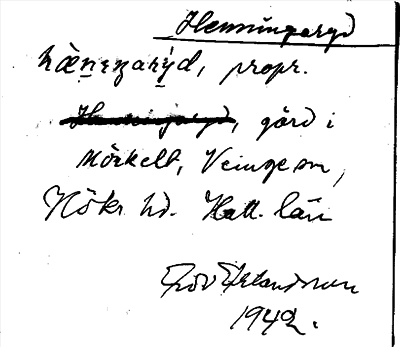 Henningaryd
hæ̀nıŋarýd, propr.
Henningaryd, gård i
Mörkelt, Veinge sn,
Höks hd. Hall. län
Erlandsson
1942.